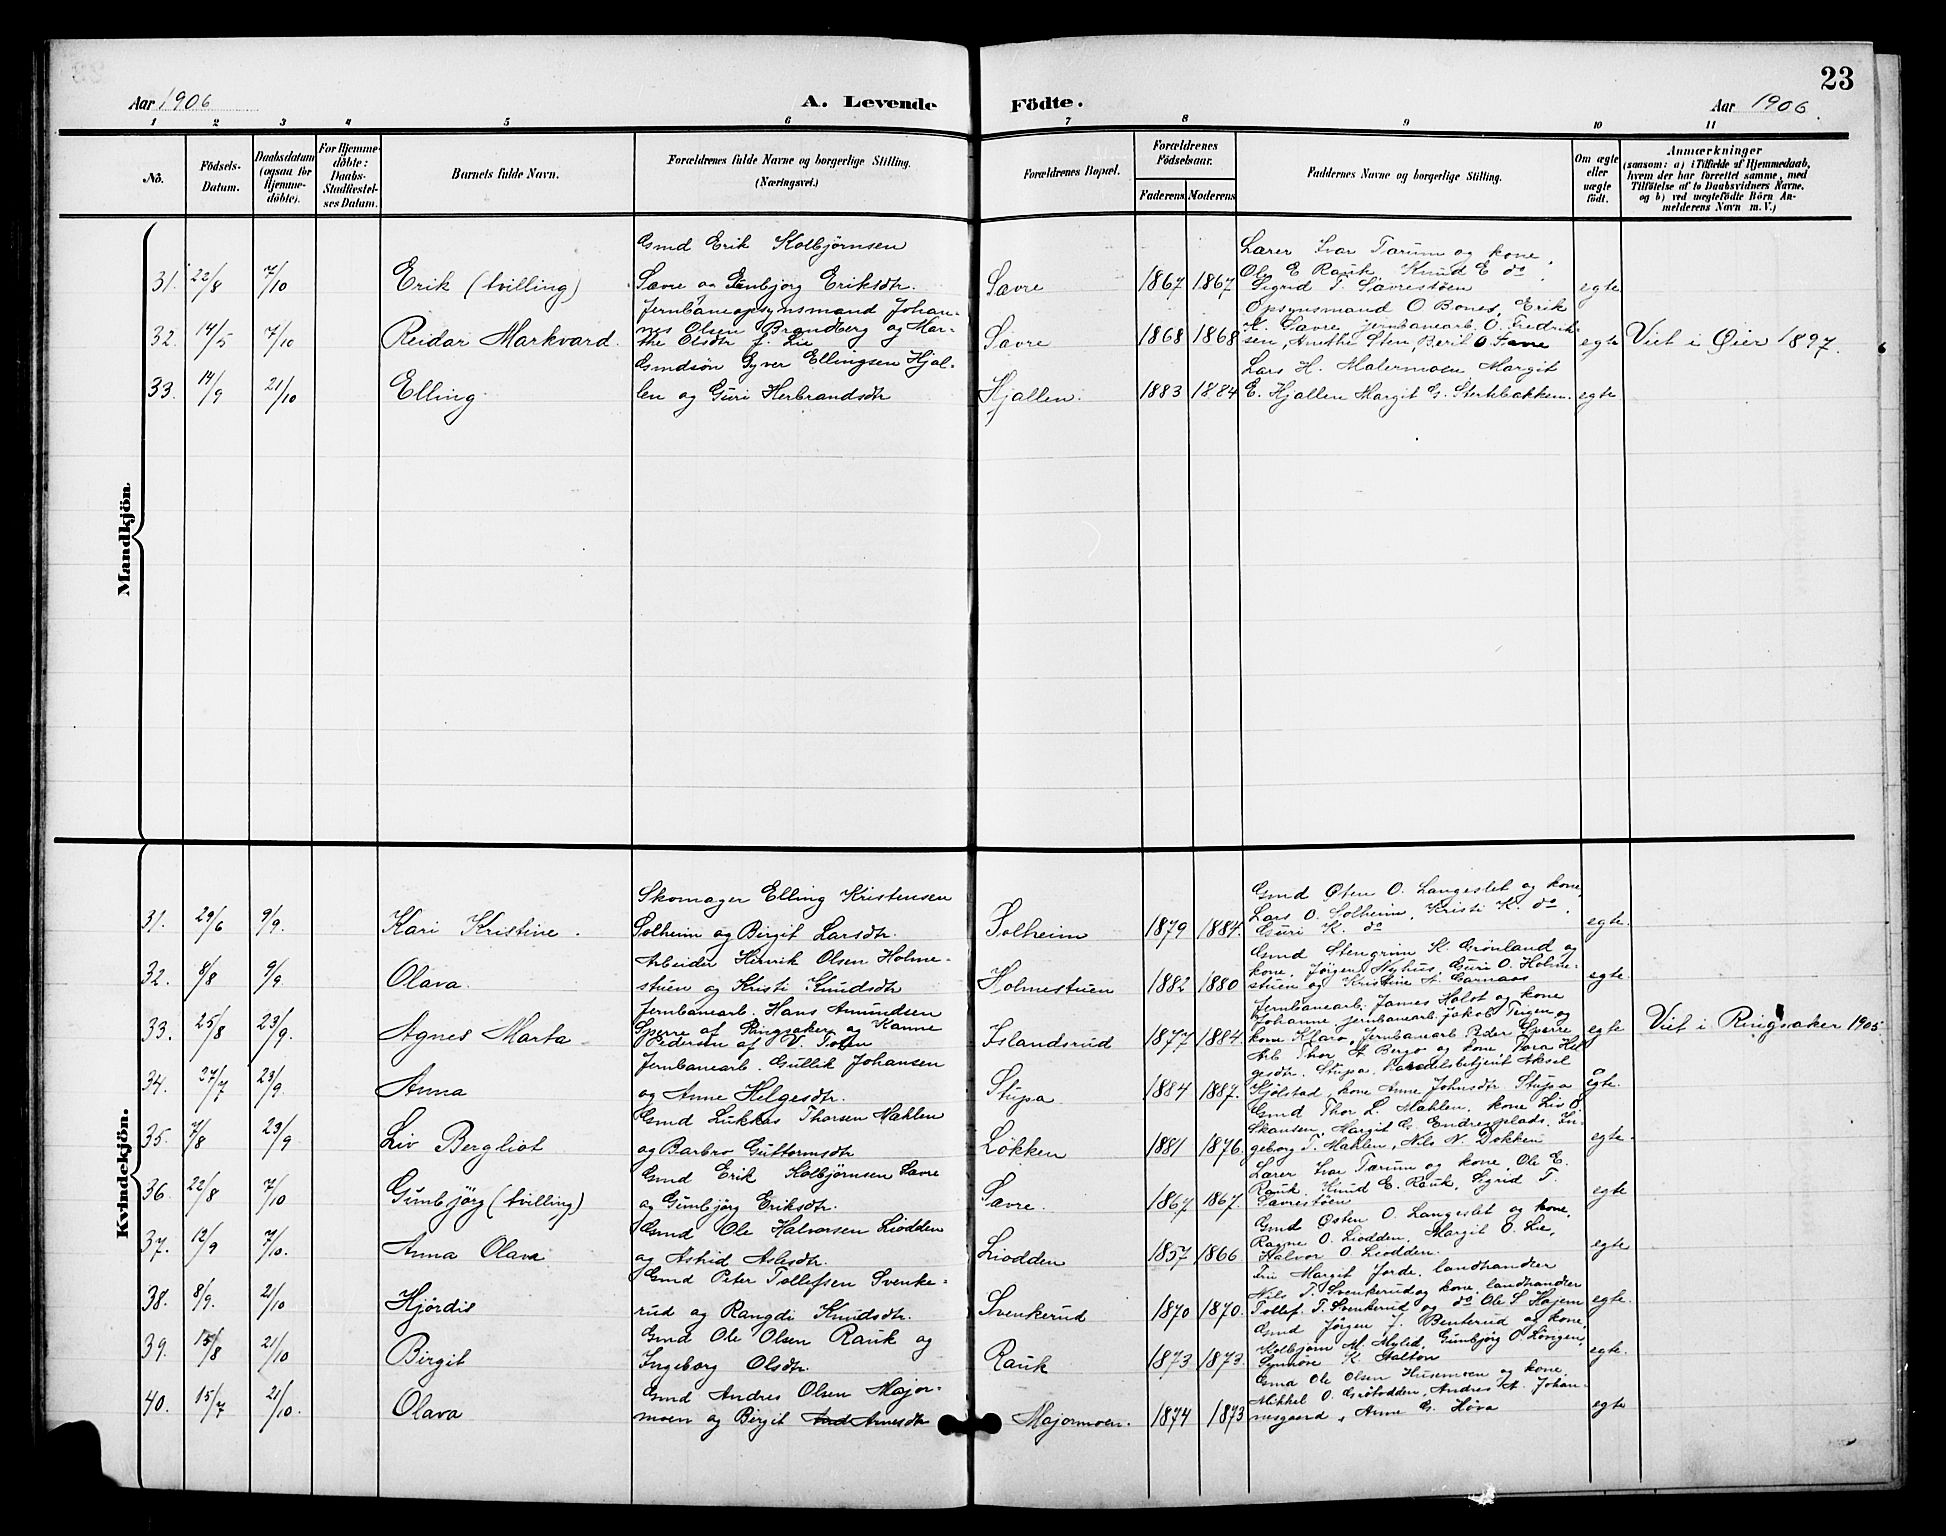 23
Aar 1906 A. Levende Födte. Aar 1906.
1 2 3 4 5 6 7 8 9 10 11
No. Födsels-Datum. Daabsdatum (ogsaa for Hjemmedöbte). For Hjemmedöbte: Daabs-Stadfæstelses Datum. Barnets fulde Navn. Forældrenes fulde Navne og borgerlige Stilling. (Næringsvei.) Forældrenes Bopæl. Forældrenes Födselsaar. Faderens Moderens Faddernes Navne og borgerlige Stilling. Om ægte eller uægte födt. Anmærkninger (saasom: a) i Tilfælde af Hjemmedaab, hvem der har forrettet samme, med Tilföielse af to Daabsvidners Navne, og b) ved uægtefödte Börn Anmelderens Navn m. V.)
Mandkjön
Gmd Erik Kolbjørnsen Lærer Ivar Tarum og kone,
31. 22/8 7/10 Erik (tvilling) Savre og Gunbjorg Eriksdtr. Savre 1867 1867 Ole E Rauk Knud E do Sigrid T. Savrestøen egte
Jernbaneopsynsmand Johan- Opsynsmand O Bones, Erik
32. 14/5 7/10 Reidar Markvard. nes Olsen Brandberg og Mar- Savre 1868 1868 K. Savre, jernbanearb. O. Fredrik- egte Viet i Øier 1897.
the Olsdtr f. Lie sen, Anethe Sten, Berit O.
Gmdsøn Syver Ellingsen Hjal- Lars H. Malermoen Margit
33. 14/9 21/10 Elling. len og Guri Herbrandsdtr Hjallen. 1883 1884 E. Hjallen Margit G. Stertebakken. egte
Kvindekjön.
Skomager Elling Kristensen Gmd Østen O. Langeslet og kone,
31. 29/6 9/9. Kari Kristine. Solheim og Birgit Larsdtr. Solheim 1879 1884. Lars O. Solheim, Kristi K. do, Guri K. do egte.
Arbeider Henrik Olsen Holme- Gmd Stengrim K. Grønland og
32. 8/8 9/9. Olava. stuen og Kristi Knudsdtr Holmestuen 1882 1880 kone, Jørgen Nyhus, Guri O. Holme- stuen og Kristine A. Garnaas egte.
Jernbanearb. Hans Amundsen Jernbanearb. James Holst og kone
33. 25/8 23/9. Agnes Marta Sperre af Ringsaker og Kanne Islandsrud 1877 1884. Johanne jernbanearb. Jakob Teigen og egte Viet i Ringsaker 1905
Pedersen af V. Toten kone Klara, Jernbanearb Peder Sperre
Jernbanearb. Gullik Johansen Arb Thor A Berg og kone, Tora Hel-
34. 27/7 23/9. Anna og Anne Helgesdtr. Stupa 1884 1887. gesdtr. Stupa, Aksel Kjølstad, kone Anne Johnsdtr. Stupa egte.
Gmd Lukkas Thorsen Mæhlen Gmd Thor L. Mæhlen, kone Liv O.
35. 7/8 23/9 Liv Bergliot og Barbro Guttormsdtr Løkken 1881 1876. Skansen, Margit G. Endresplads, In- geborg T. Mæhlen, Nils N. Dokken egte.
Gmd Erik Kolbjørnsen Savre Lærer Ivar Tarum og kone, Ole E.
36. 22/8 7/10 Gunbjörg (tvilling) og Gunbjørg Eriksdtr. Savre. 1867 1867. Rauk, Knud E. Rauk, Sigrid T. Savrestøen egte
Gmd Ole Halvorsen Liodden Gmd Østen O. Langeslet og kone,
37. 12/9 7/10. Anna Olava og Astrid Aslesdtr. Liodden 1857 1866 Ragne O. Liodden, Margit O. Lie, Halvor O Liodden. egte
Gmd Peter Tollefsen Svenke- Fru Margit Jorde, landhandler
38. 8/9. 21/10 Hjördis rud og Rangdi Knudsdtr. Svenkerud 1870 1870. Nils T. Svenkerud og kone, landhandler Tollef. T. Svenkerud og do Ole S Hajem egte.
Gmd Ole Olsen Rauk og Gmd Jørgen J. Benterud og kone,
39. 15/8 21/10 Birgit Ingeborg Olsdtr. Rauk 1873 1873. Kolbjørn M. Mylid, Gunbjörg O. Longen, Synnöve K. Halton egte.
Gmd Andres Olsen Major- Gmd Ole Olsen Husemoen og kone,
40. 15/7 21/10. Olava moen og Birgit Arnesdtr Majormoen. 1874 1873 Mikkel O. Grøtodden, Andres A. Johan- nesgaard, Anne G. Høva egte